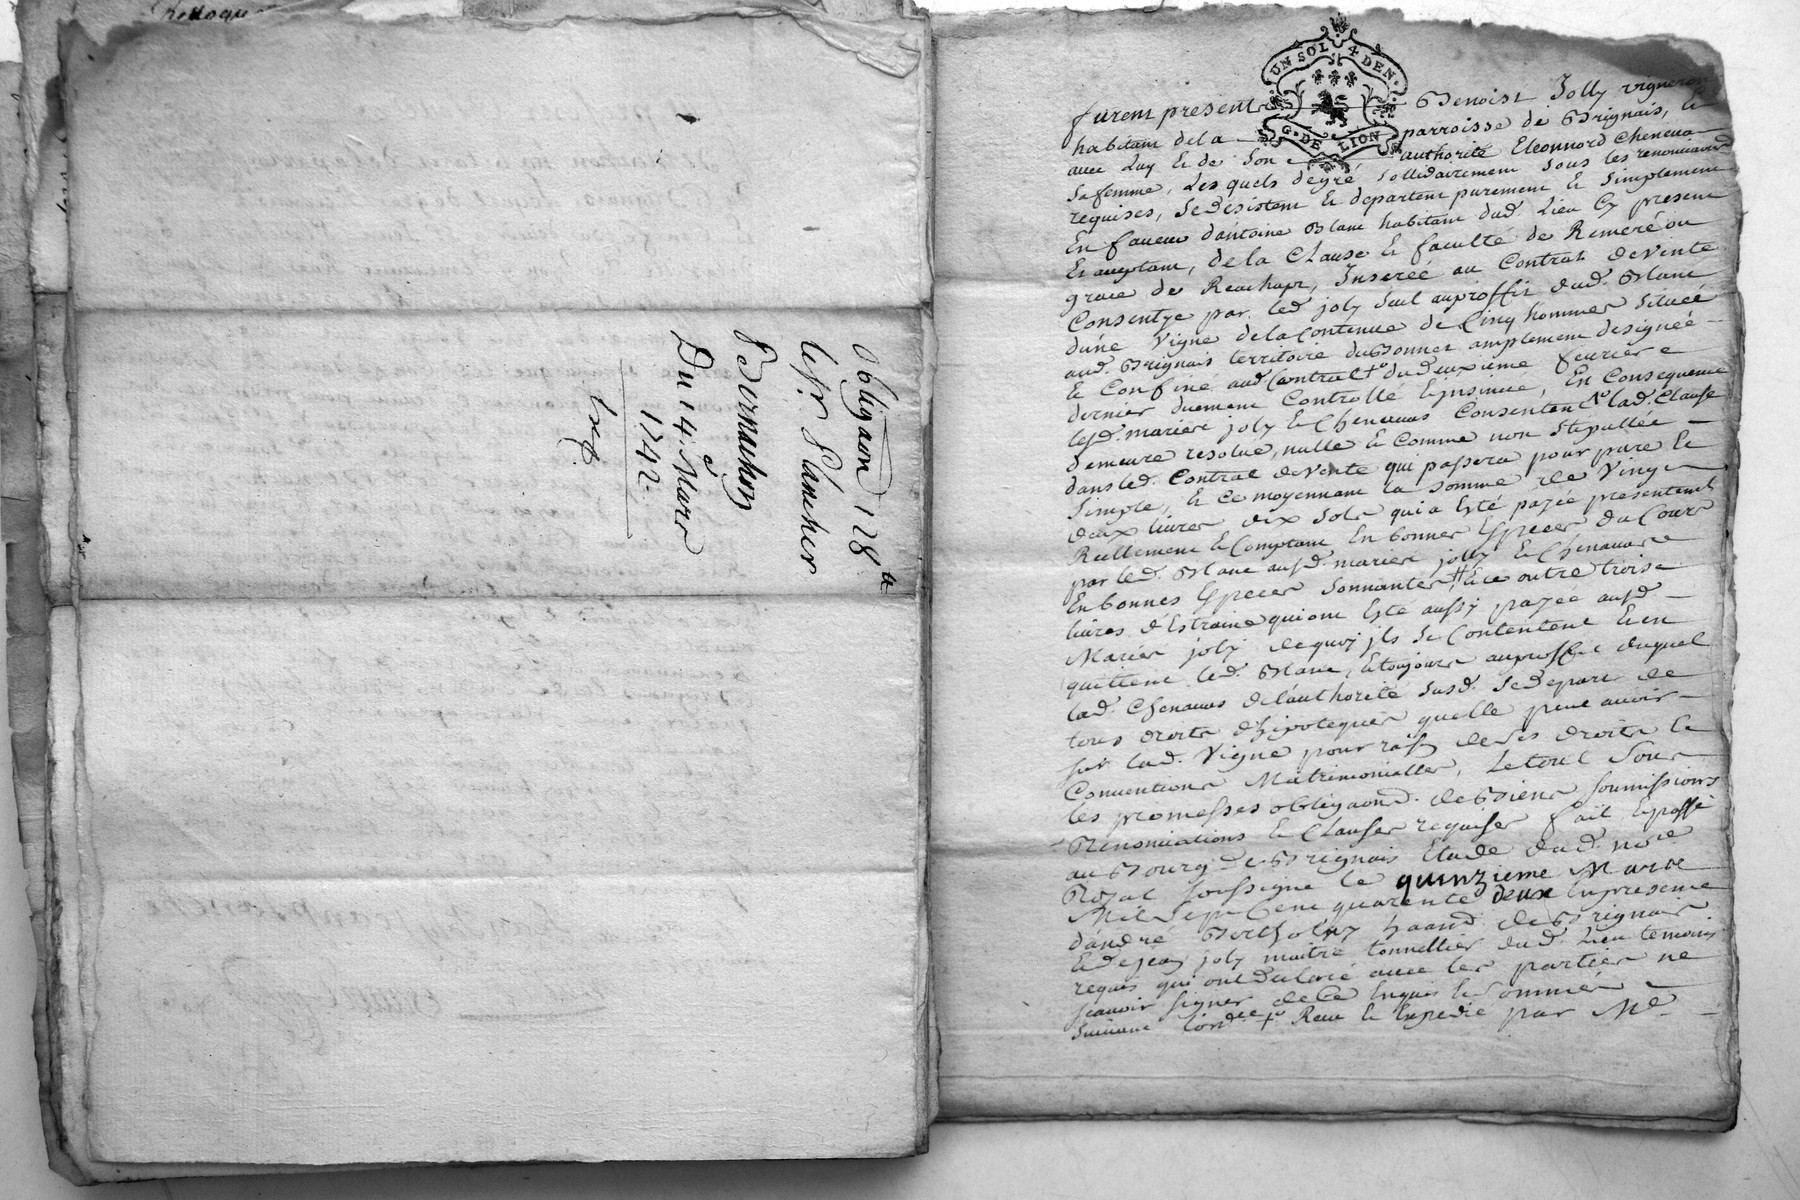 Obligaõn 128ᵗᵗ
le Sr. Plancher
Bernachon
Du 14e. Mars
1742.
UN SOL 4 DEN.
G. DE LION
furent presents Benoist Jolly vigneron
habitant de la parroisse de Brignais, Et
avec Luy Et de Son authorité Eleonnord Chenevas
Sa femme, Lesquels de gré Sollidairement Sous les renonciaõns
requises, Se desistent Et departent purement Et Simplement
En faveur d'antoine Blanc habitant dud. Lieu Cy present
Et aceptant, de la Clause Et faculté de Remeré ou
grace de Reachapt, Inserée au Contrat de Vente
Consentye par led. joly Seul au proffit dud. Blanc
d'une Vigne de la Contenue de Cinq hommes Située
aud. Brignais territoire du Bonnet amplement designée
Et Confiné aud. Contrat du deuxieme fevrier
dernier duement Controllé Et insinué, En Consequence
lesd. mariés joly Et Chenavas Consentent que lad. Clause
demeure resolue, nulle Et Comme non Stipullée
dans led. Contrat de Vente qui passera pour pure Et
Simple, Et Ce moyennant la Somme de Vingt
deux livres dix Sols qui a Esté payée presentement
Reellement Et Comptant En bonnes Especes du Cours
par led. Blanc ausd. mariés jolly Et Chenavas
En bonnes Especes Sonnantes # Et ce outre trois
livres d'Estraine qui ont Esté aussy payée ausd.
Mariés joly de quoy jls Se Contentent Et en
quittent led. Blanc, Et toujours au proffit duquel
lad. Chenavas de l'authorité Susd. Se depart de
tous droits d'hipoteques quelle peut avoir
sur lad. Vigne pour raison de Ses droits Et
Conventions Matrimonialles, Le tout Sous
les promesses obligaõns. de Biens Soumissions
Renonciations Et Clauses requises fait Et passé
au Bourg de Brignais Etude dud. nore
Royal Soussigné le quinzieme Mars
Mil Sept Cent quarente deux En presence
d'andré Bertholey de Brignais
Et de jean joly maitre tonnellier dud. Lieu temoins
requis qui ont declaré avec les parties ne
scavoir Signer de Ce Enquis Et Sommés
Suivant Lordce Receu Et Expedié par Me